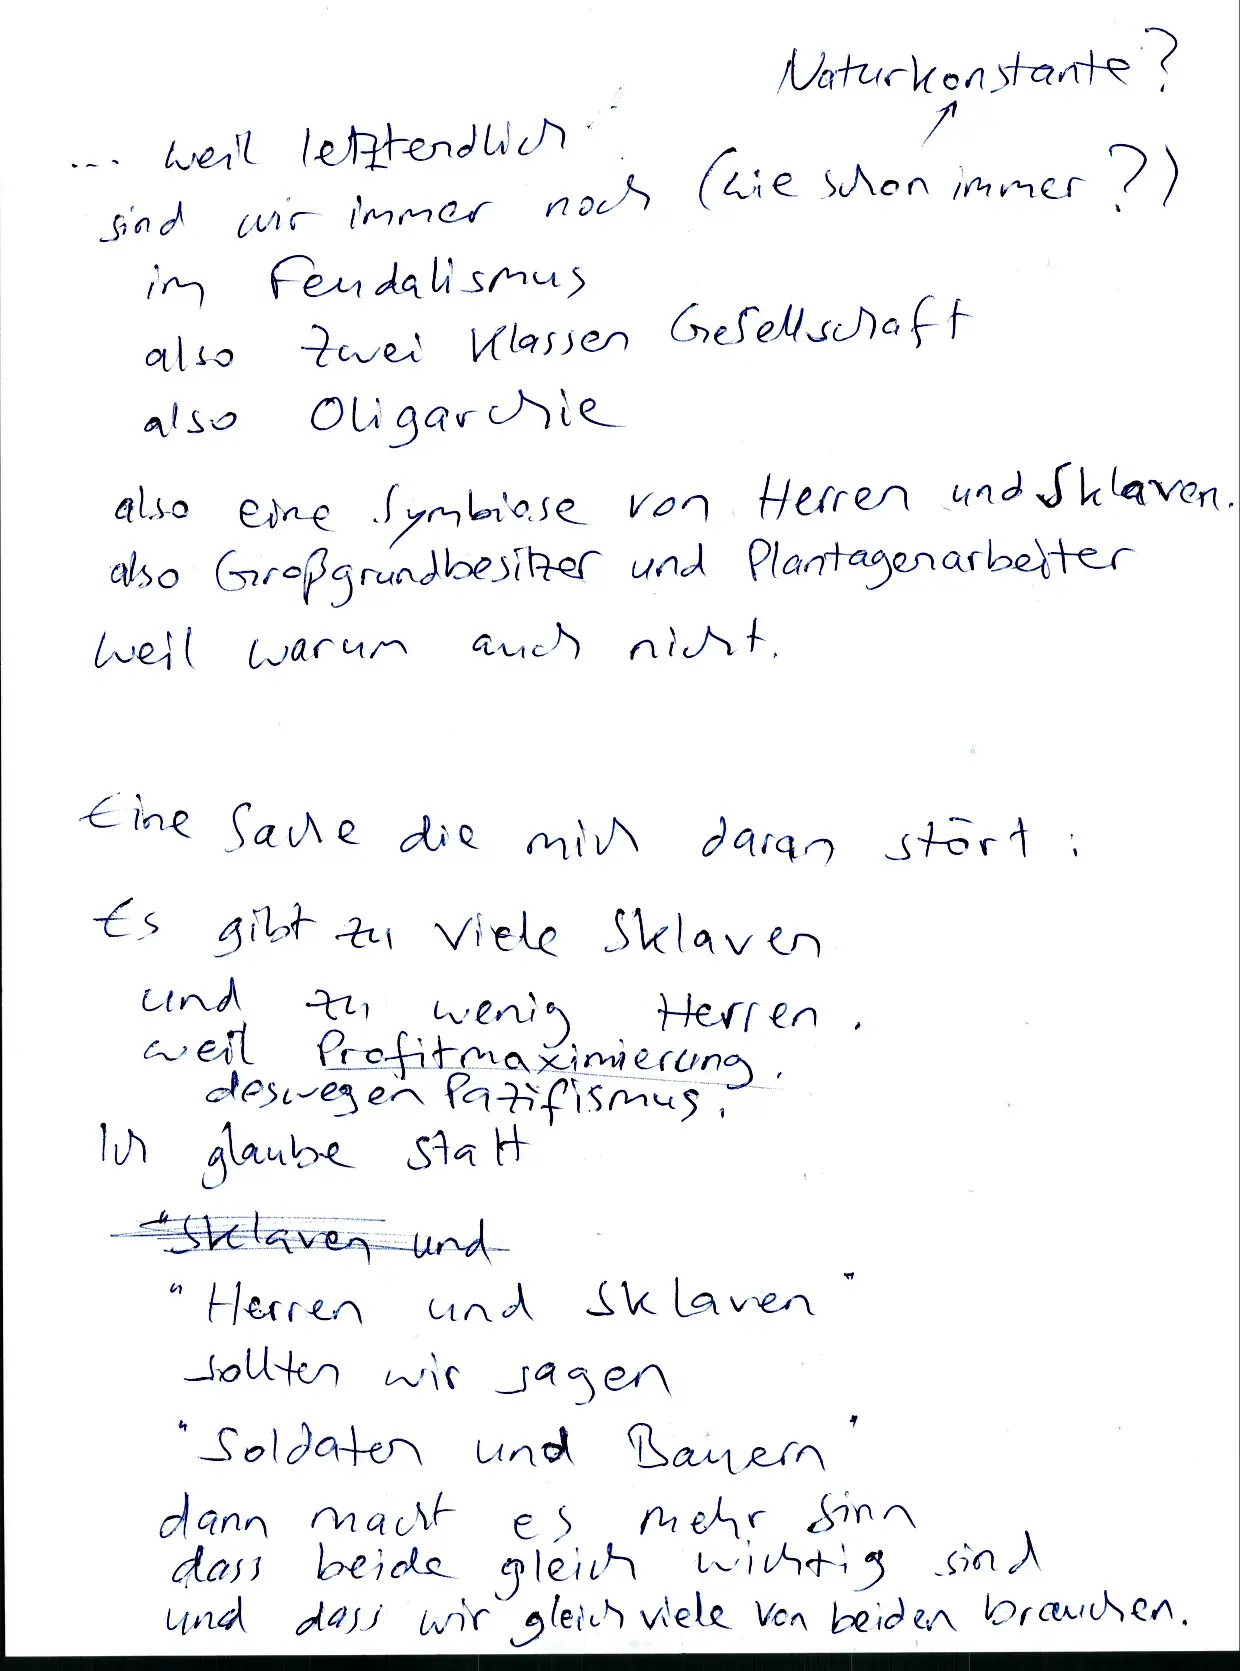 Naturkonstante?
... weil letztendlich
sind wir immer noch (wie schon immer?)
im Feudalismus
also zwei Klassen Gesellschaft
also Oligarchie
also eine Symbiose von Herren und Sklaven.
also Großgrundbesitzer und Plantagenarbeiter
weil warum auch nicht.
Eine Sache die mich daran stört:
Es gibt zu viele Sklaven
und zu wenig Herren.
weil Profitmaximierung.
deswegen Pazifismus.
Ich glaube statt
"Sklaven und
"Herren und Sklaven"
sollten wir sagen
"Soldaten und Bauern"
dann macht es mehr Sinn
dass beide gleich wichtig sind
und dass wir gleich viele von beiden brauchen.